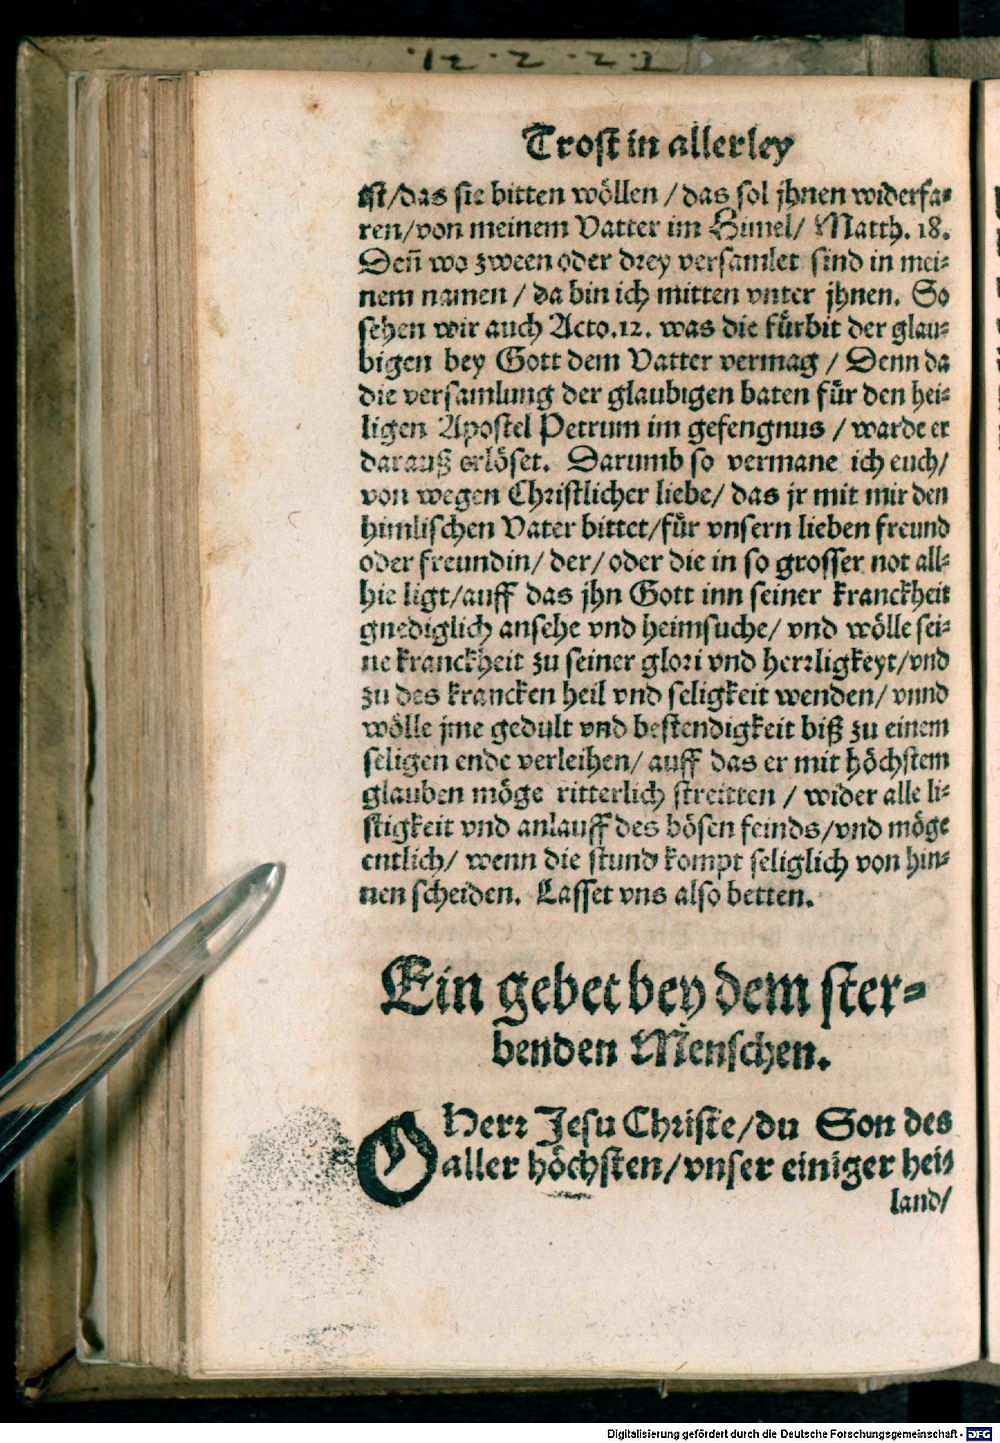 Trost in allerley
ist/das sie bitten wöllen / das sol jhnen widerfa-
ren/von meinem Vatter im Himel/ Matth. 18.
Deñ wo zween oder drey versamlet sind in mei-
nem namen / da bin ich mitten vnter jhnen. So
sehen wir auch Acto.12. was die fürbit der glau-
bigen bey Gott dem Vatter vermag / Denn da
die versamlung der glaubigen baten für den hei-
ligen Apostel Petrum im gefengnus / warde er
darauß erlöset. Darumb so vermane ich euch/
von wegen Christlicher liebe/ das jr mit mir den
himlischen Vater bittet/für vnsern lieben freund
oder freundin/ der/ oder die in so grosser not all-
hie ligt/auff das jhn Gott inn seiner kranckheit
gnediglich ansehe vnd heimsuche/ vnd wölle sei-
ne kranckheit zu seiner glori vnd herrligkeyt/vnd
zu des krancken heil vnd seligkeit wenden/ vnnd
wölle jme gedult vnd bestendigkeit biß zu einem
seligen ende verleihen/ auff das er mit höchstem
glauben möge ritterlich streitten / wider alle li-
stigkeit vnd anlauff des bösen feinds/vnd möge
entlich/ wenn die stund kompt seliglich von hin-
nen scheiden. Lasset vns also betten.
Ein gebet bey dem ster-
benden Menschen.
O Herr Jesu Christe/du Son des
aller höchsten/vnser einiger hei-
land/
Digitalisierung gefördert durch die Deutsche Forschungsgemeinschaft - DFG